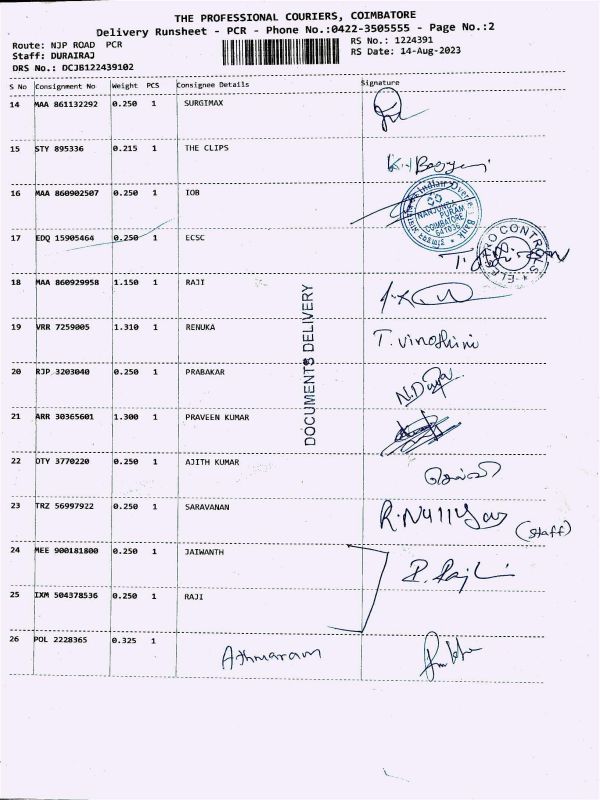 THE PROFESSIONAL COURIERS, COIMBATORE
Delivery Runsheet - PCR - Phone No.:0422-3505555 - Page No.:2
Route: NJP ROAD PCR
RS No.: 1224391
Staff: DURAIRAJ
RS Date: 14-Aug-2023
DRS No.: DCJB122439102
S No Consignment No Weight PCS Consignee Details Signature
14 MAA 861132292 0.250 1 SURGIMAX
15 STY 895336 0.215 1 THE CLIPS
16 MAA 860902507 0.250 1 IOB
NANJUNDA
PURAM
COIMBATORE
641036
17 EDQ 15905464 0.250 1 ECSC
CONTROLS
18 MAA 860929958 1.150 1 RAJI
DOCUMENTS DELIVERY
19 VRR 7259005 1.310 1 RENUKA T. Vinothini
20 RJP 3203040 0.250 1 PRABAKAR
21 ARR 30365601 1.300 1 PRAVEEN KUMAR
22 OTY 3770220 0.250 1 AJITH KUMAR
23 TRZ 56997922 0.250 1 SARAVANAN
(Staff)
24 MEE 900181800 0.250 1 JAIWANTH
25 IXM 504378536 0.250 1 RAJI
26 POL 2228365 0.325 1 Athmaram